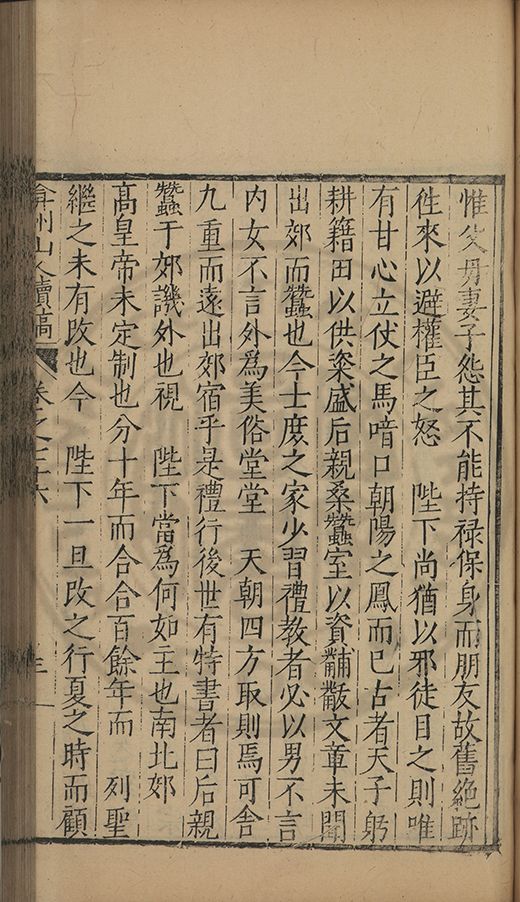 惟父母妻子怨其不能持禄保身而朋友故舊絕跡
徃來以避權臣之怒　陛下尚猶以邪徒目之則唯
有甘心立仗之馬喑口朝陽之鳳而已古者天子躬
耕籍田以供粢盛后親桑蠶室以資黼黻文章未聞
出郊而蠶也今士庶之家少習禮教者必以男不言
内女不言外為美俗堂堂　天朝四方取則焉可舍
九重而遠出郊宿乎是禮行後世有特書者曰后親
蠶于郊譏外也視　陛下當為何如主也南北郊
髙皇帝未定制也分十年而合合百餘年而　列聖
繼之未有改也今　陛下一旦改之行夏之時而顧
弇州山人續稿　卷之三十六　三